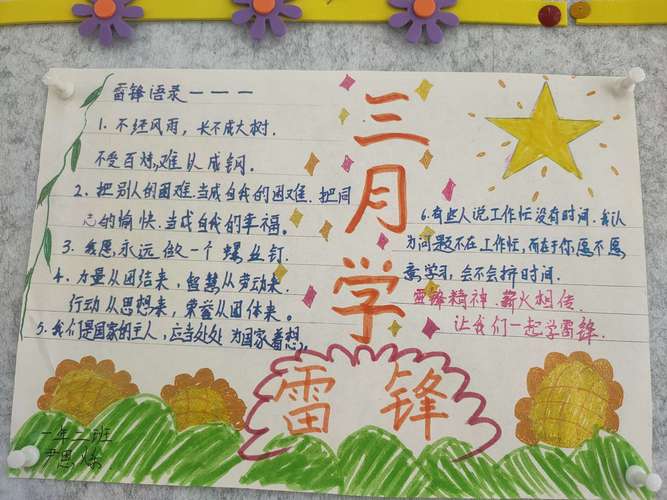 雷锋语录一一一
1. 不经风雨，长不成大树.
不受百炼，难以成钢.
2. 把别人的困难.当成自我的困难.把同
志的愉快.当成自我的幸福。
3. 我愿永远做一个螺丝钉.
4. 力量从团结来，智慧从劳动来.
行动从思想来，荣誉从团体来。
5. 我们是国家的主人，应当处处为国家着想，
三月学
雷锋
6.有些人说工作忙没有时间.我认
为问题不在工作忙，而在于你愿不愿
意学习，会不会挤时间.
雷锋精神.薪火相传.
让我们一起学雷锋.
一年二班
尹思